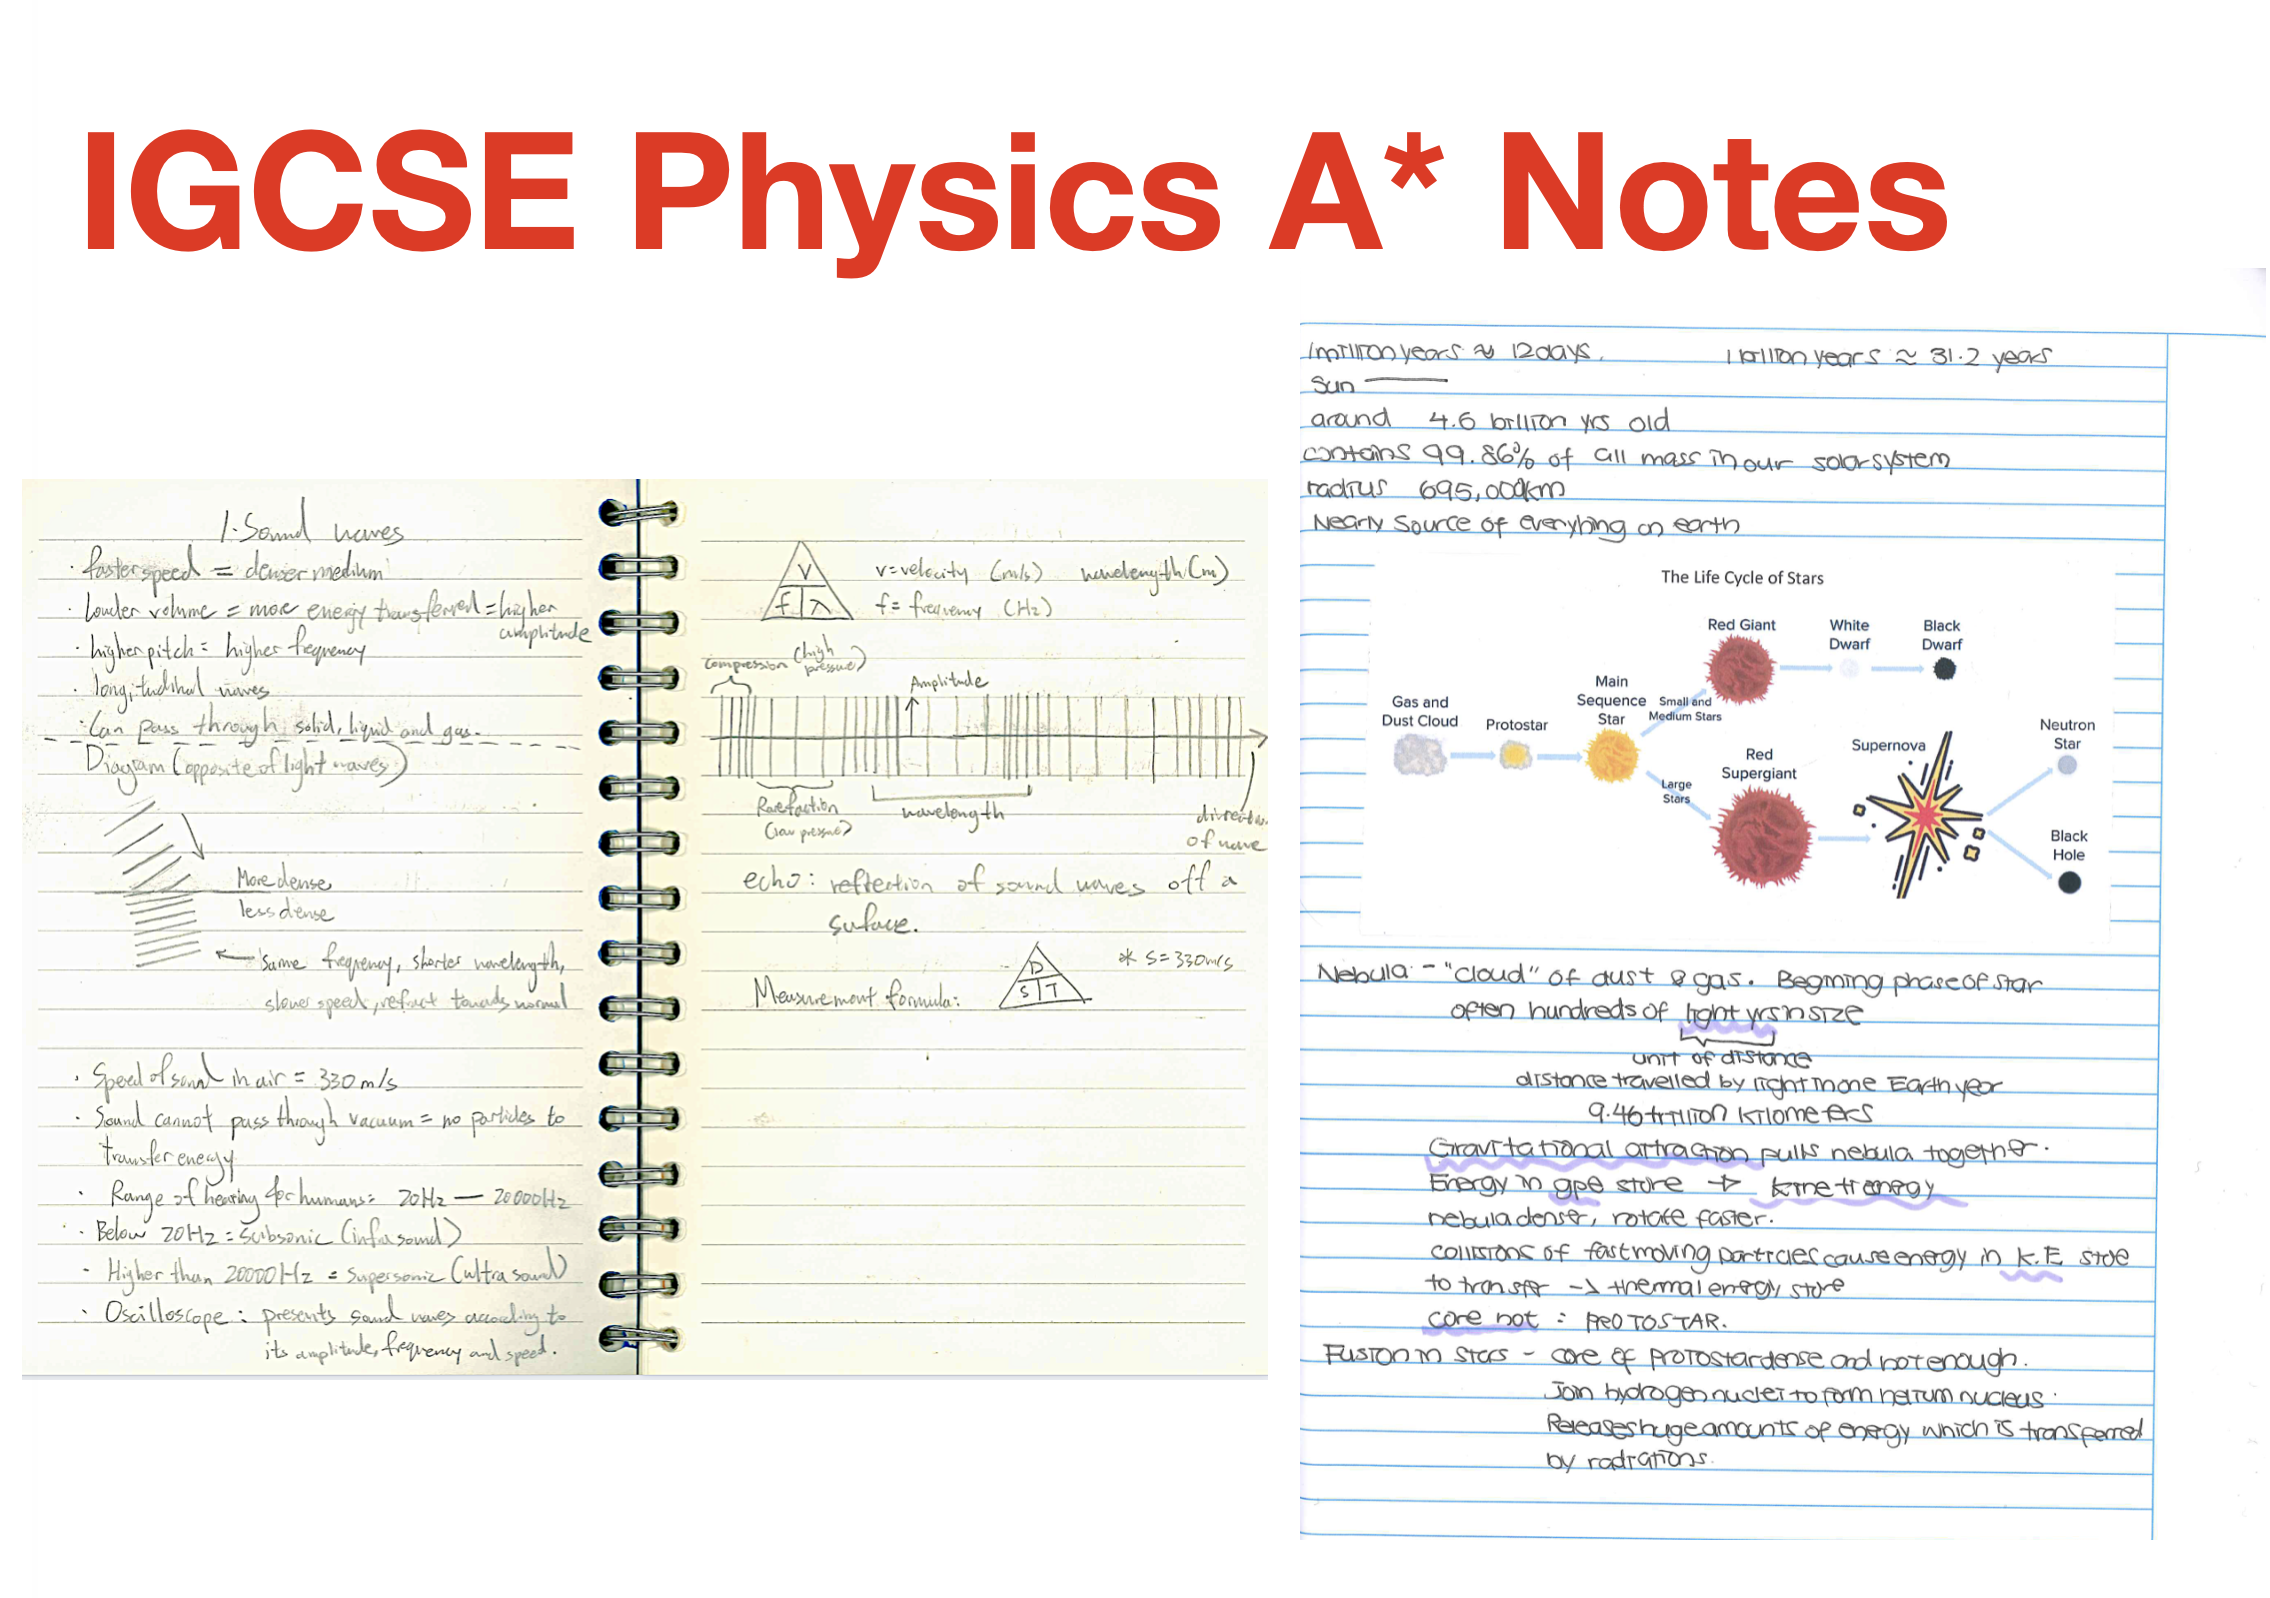 IGCSE Physics A* Notes
1. Sound waves
· faster speed = denser medium
· Louder volume = more energy transferred = higher
amplitude
· higher pitch = higher frequency
· longitudinal waves
· Can pass through solid, liquid and gas.
Diagram (opposite of light waves)
More dense
less dense
same frequency, shorter wavelength,
slower speed, refract towards normal
· Speed of sound in air = 330 m/s
· Sound cannot pass through vacuum = no particles to
transfer energy
· Range of hearing for humans = 20Hz — 20000Hz
· Below 20Hz = Subsonic (infrasound)
· Higher than 20000Hz = Supersonic (ultrasound)
· Oscilloscope: presents sound waves according to
its amplitude, frequency and speed.
V
f λ
v=velocity (m/s) wavelength (m)
f= frequency (Hz)
compression (high
pressure)
Amplitude
Rarefaction
(low pressure)
wavelength
direction
of wave
echo: reflection of sound waves off a
surface.
Measurement formula:
D
S T
* S=330m/s
1 million years ≈ 12 days.
1 billion years ≈ 31.2 years
Sun
around 4.6 billion yrs old
contains 99.86% of all mass in our solar system
radius 695,000km
Nearly Source of everyhing on earth
The Life Cycle of Stars
Red Giant
White
Dwarf
Black
Dwarf
Gas and
Dust Cloud
Protostar
Main
Sequence
Star
Small and
Medium Stars
Large
Stars
Red
Supergiant
Supernova
Neutron
Star
Black
Hole
Nebula - "cloud" of dust & gas. Beginning phase of star
often hundreds of light yrs in size
unit of distance
distance travelled by light in one Earth year
9.46 trillion kilometers
Gravitational attraction pulls nebula together.
Energy in gpe store → kinetic energy
nebula denser, rotate faster.
collisions of fast moving particles cause energy in K.E store
to transfer → thermal energy store
core hot : PROTOSTAR.
Fusion in stars - core of protostar dense and hot enough.
Join hydrogen nuclei to form helium nucleus.
Releases huge amounts of energy which is transferred
by radiations.